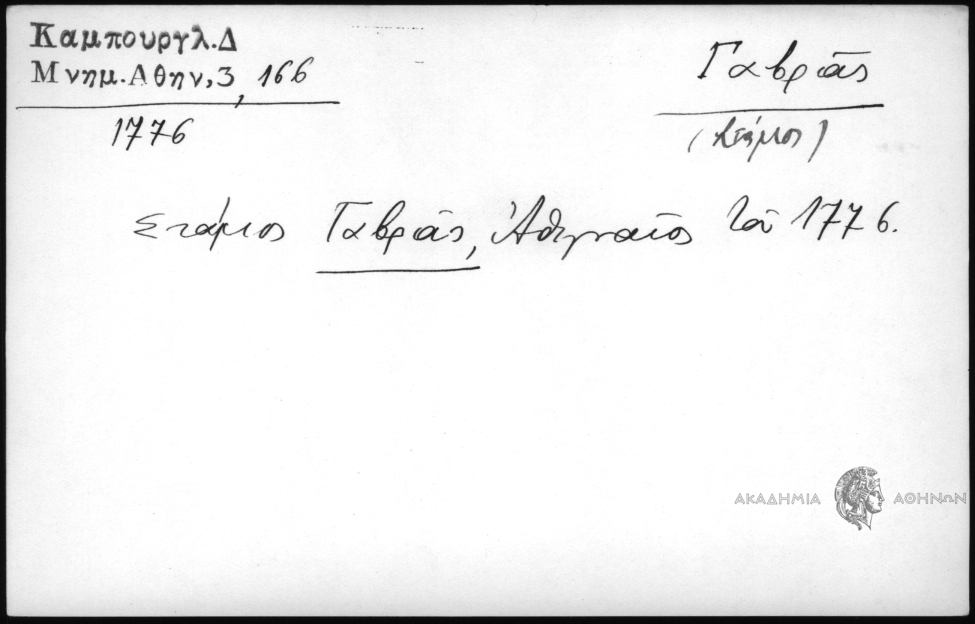 Καμπουργλ.Δ
Μνημ.Αθην,3, 166
1776
Γαβρᾶς
(Στάμος)
Στάμος Γαβρᾶς, Ἀθηναῖος τοῦ 1776.
ΑΚΑΔΗΜΙΑ ΑΘΗΝΩΝ